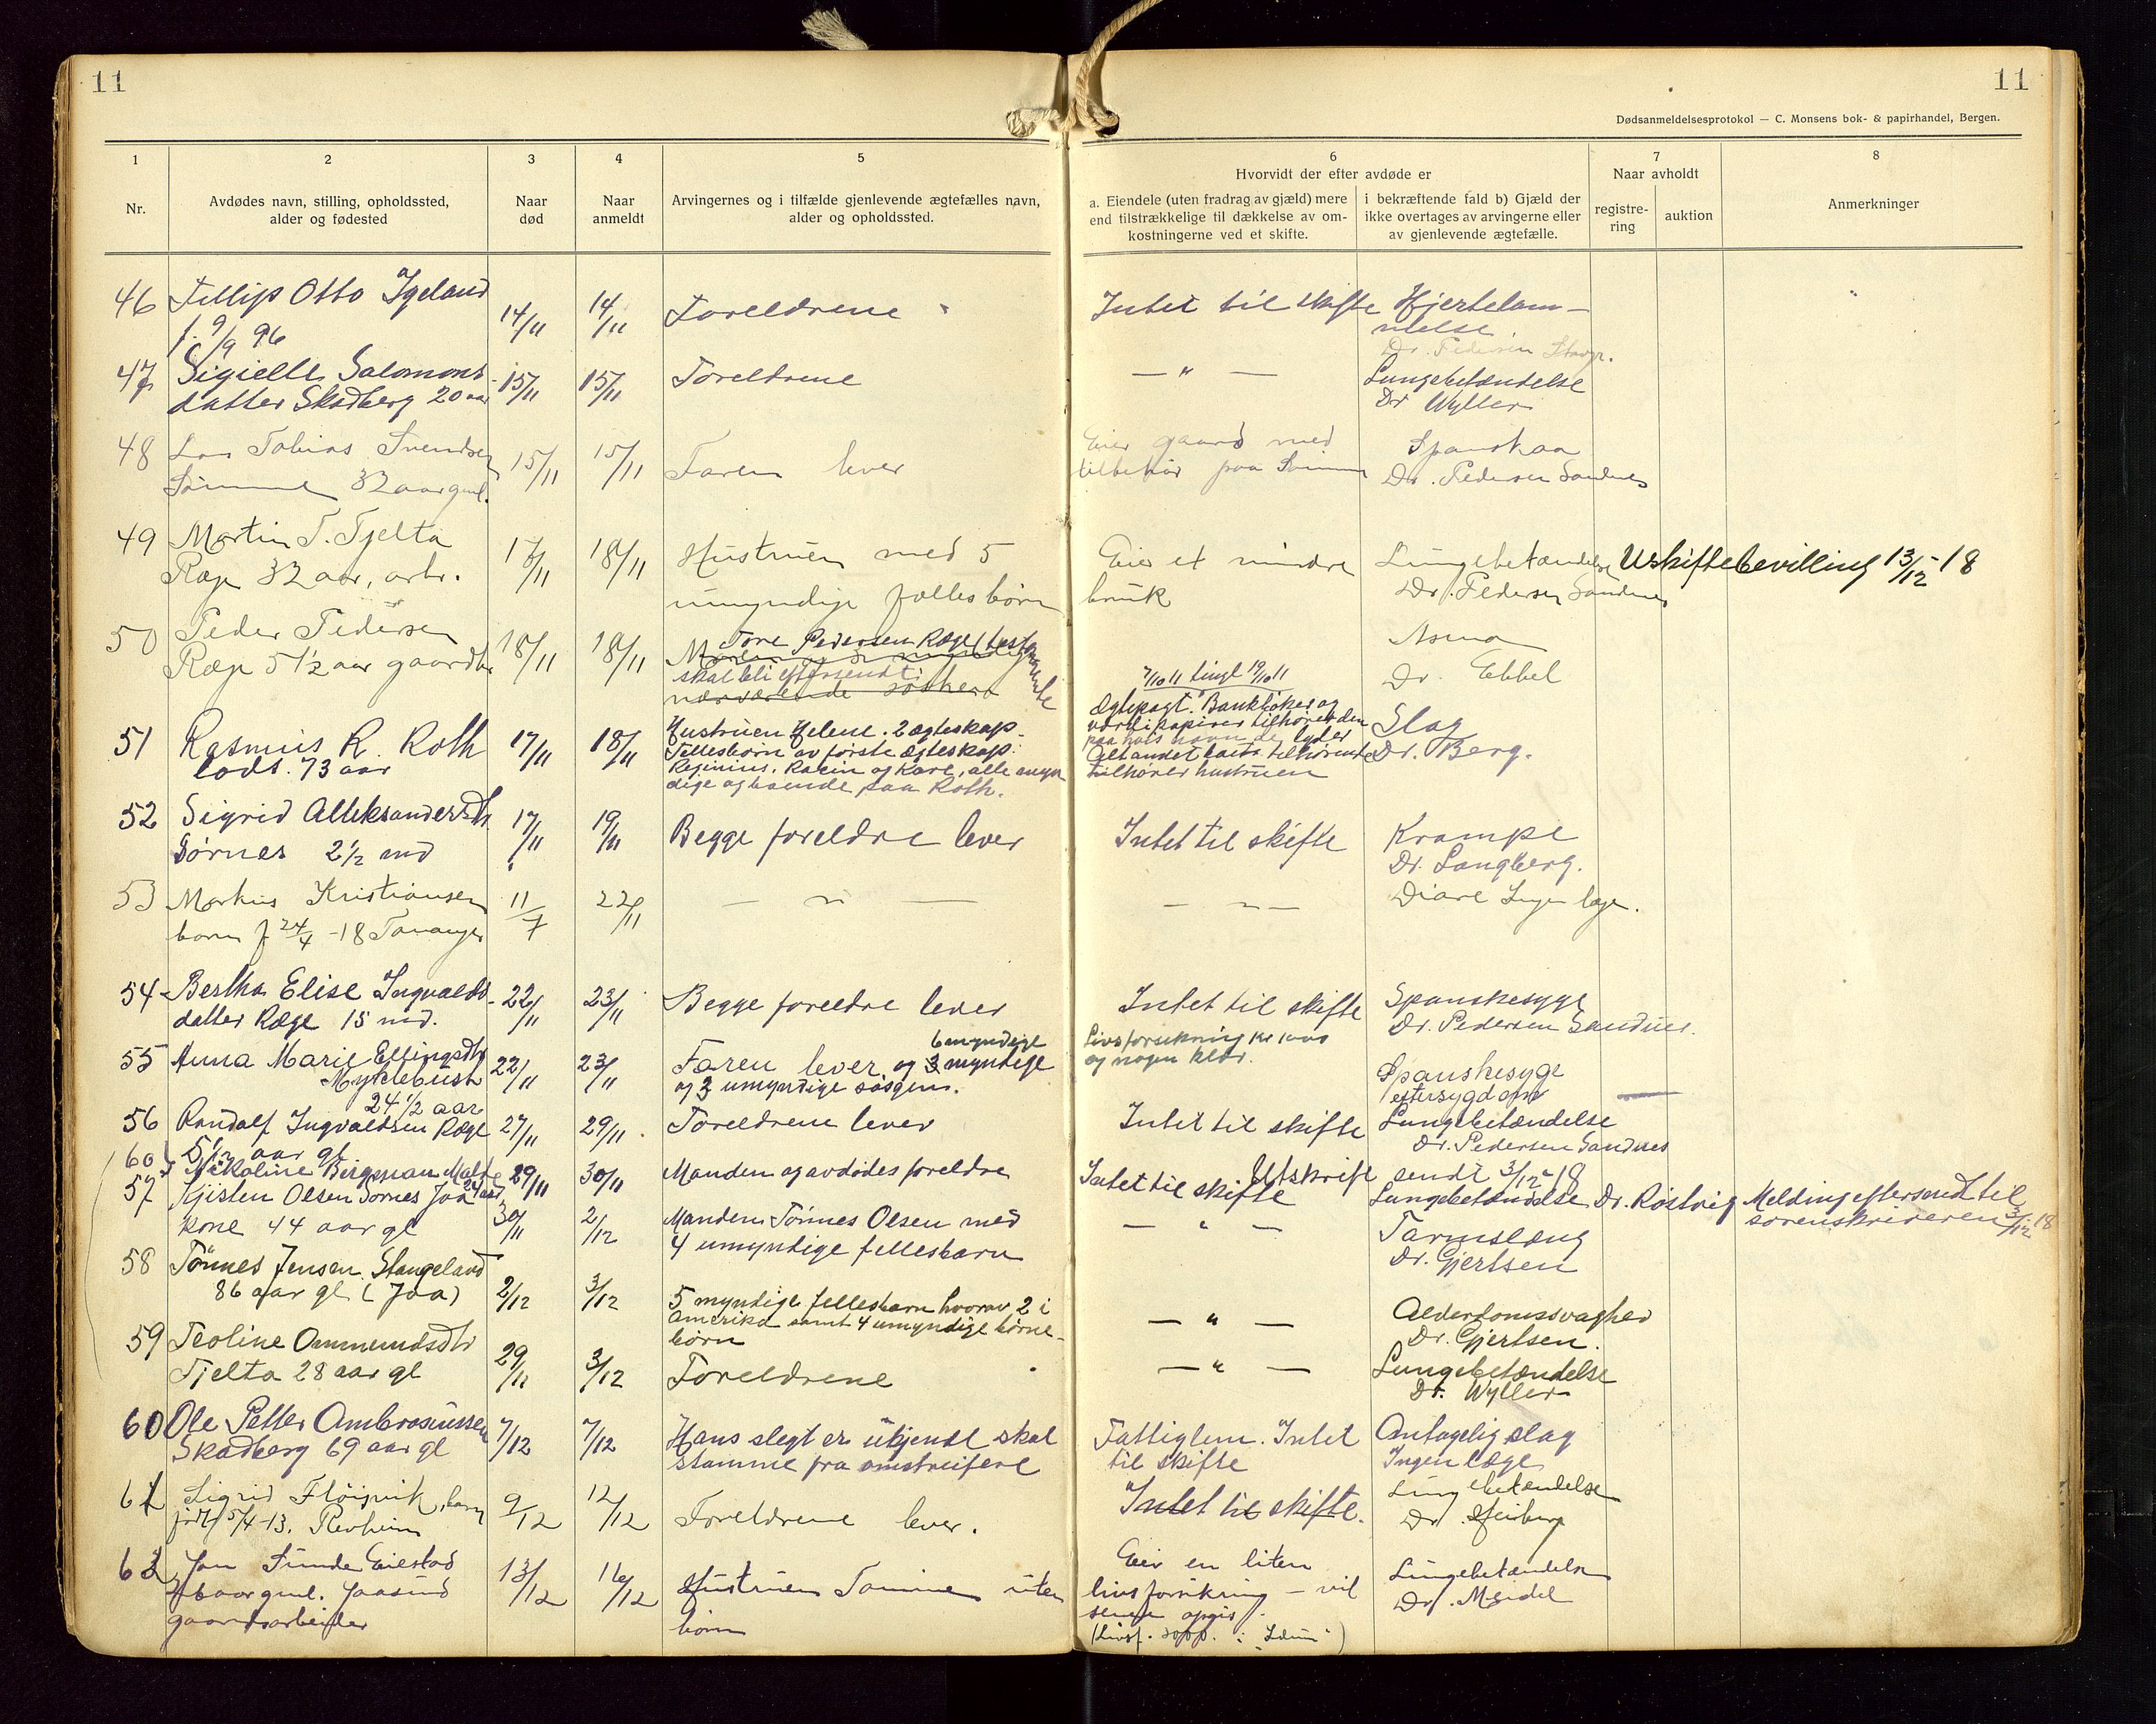 11
11
Dødsanmeldelsesprotokol — C. Monsens bok- & papirhandel, Bergen.
1
2
3
4
5
6
7
8
Nr.
Avdødes navn, stilling, opholdssted,
alder og fødested
Naar
død
Naar
anmeldt
Arvingernes og i tilfælde gjenlevende ægtefælles navn,
alder og opholdssted.
Hvorvidt der efter avdøde er
a. Eiendele (uten fradrag av gjæld) mere
end tilstrækkelige til dækkelse av om-
kostningerne ved et skifte.
i bekræftende fald b) Gjæld der
ikke overtages av arvingerne eller
av gjenlevende ægtefælle.
Naar avholdt
registre-
ring
auktion
Anmerkninger
46 Fillip Otto Igeland 14/11 14/11 Foreldrene Intet til skifte Hjertelam-
f. 9/9 96 melse
Dr. Pedersen Stavgr.
47 Sigielle Salomons- 15/11 15/11 Foreldrene — " — Lungebetændelse
datter Skadberg 20 aar Dr Wyller
48 Tobias Svendsen 15/11 15/11 Faren lever Eier gaard med Spanska
Sömme 32 aar gml. tilbehör paa Sömme Dr. Pedersen Sandnes
49 Martin T. Tjelta 17/11 18/11 Hustruen med 5 Eier et mindre Lungebetændelse Uskiftebevilling 13/12-18
Ræge 32 aar, arb. umyndige felles börn bruk Dr. Pedersen Sandnes
50 Peder Pedersen 18/11 18/11 Tore Pedersen Ræge Asma
Ræge 51½ aar gaardbr. skal bli eftersendt Dr. Ebbel
nærværende söskend
7/10 11 tingl 19/10 11
51 Rasmus R. Roth 17/11 18/11 Hustruen Helene. 2 ægteskap. Ægtepagt. Bankböker og Slag
lods. 73 aar Fellesbörn av förste ægteskap: værdipapirer tilhörer den Dr. Berg.
Reginius, Rakin og Kare, alle myn- paa hvis navn de lyder
dige og boende paa Roth. Alt andet boets tilhörende
tilhörer hustruen
52 Sigrid Alleksandersdtr 17/11 19/11 Begge foreldre lever Intet til skifte Krampe
Sörnes 2½ md Dr. Langberg.
53 Markus Kristiansen 11/7 22/11 — " — — " — Diare Ingen læge.
barn f 24/4 -18 Tananger
54 Bertha Elise Ingvalds- 22/11 23/11 Begge foreldre lever Intet til skifte Spanskesyge
datter Ræge 15 md. Dr. Pedersen Sandnes.
55 Anna Marie Ellingsdtr 22/11 23/11 Faren lever og 3 myndige Livsforsikring kr 1000
6 myndige
Myklebust og 3 umyndige søsgen. og nogen klær. Spanskesyge
24½ aar eftersygdom
56 Randalf Ingvaldsen Ræge 27/11 29/11 Foreldrene lever Intet til skifte Lungebetændelse
5½ aar gl Dr. Pedersen Sandnes
60 Nikoline Bergman Malde 29/11 30/11 Manden og avdödes foreldre Intet til skifte Utskrift sendt 3/12-18
24 aar Lungebetændelse Dr. Röstvig Melding eftersendt til
sorenskriveren 3/12 18
57 Kjisten Olsen Sørnes Jaa 30/11 2/12 Manden Tönnes Olsen med — " — Tarmslæng
kone 44 aar gl 4 umyndige fellesbarn Dr. Gjertsen
58 Tönnes Jensen Stangeland 2/12 3/12 5 myndige fellesbarn hvorav 2 i — " — Alderdomssvaghed
86 aar gl (Jaa) Amerika samt 4 umyndige börne- Dr. Gjertsen.
börn
59 Teoline Ommundsdtr 29/11 3/12 Foreldrene — " — Lungebetændelse
Tjelta 28 aar gl Dr. Wyller
60 Ole Petter Ambrosiussen 7/12 7/12 Hans slegt er ukjendt skal Fattiglem. Intet Antagelig slag
Skadberg 69 aar gl stamme fra omstreifere til skifte Ingen læge
61 Sigrid Flöisvik, barn 9/12 12/12 Foreldrene lever. Intet til skifte. Lungebetændelse
född 5/4-13. Revheim Dr.
62 Jon Sunde Eiestad 13/12 16/12 Hustruen uten Eier en liten Lungebetændelse
aar gml. Jaasund börn livsforsikring — vil Dr. Meidel
gaardsarbeider senere opgis.